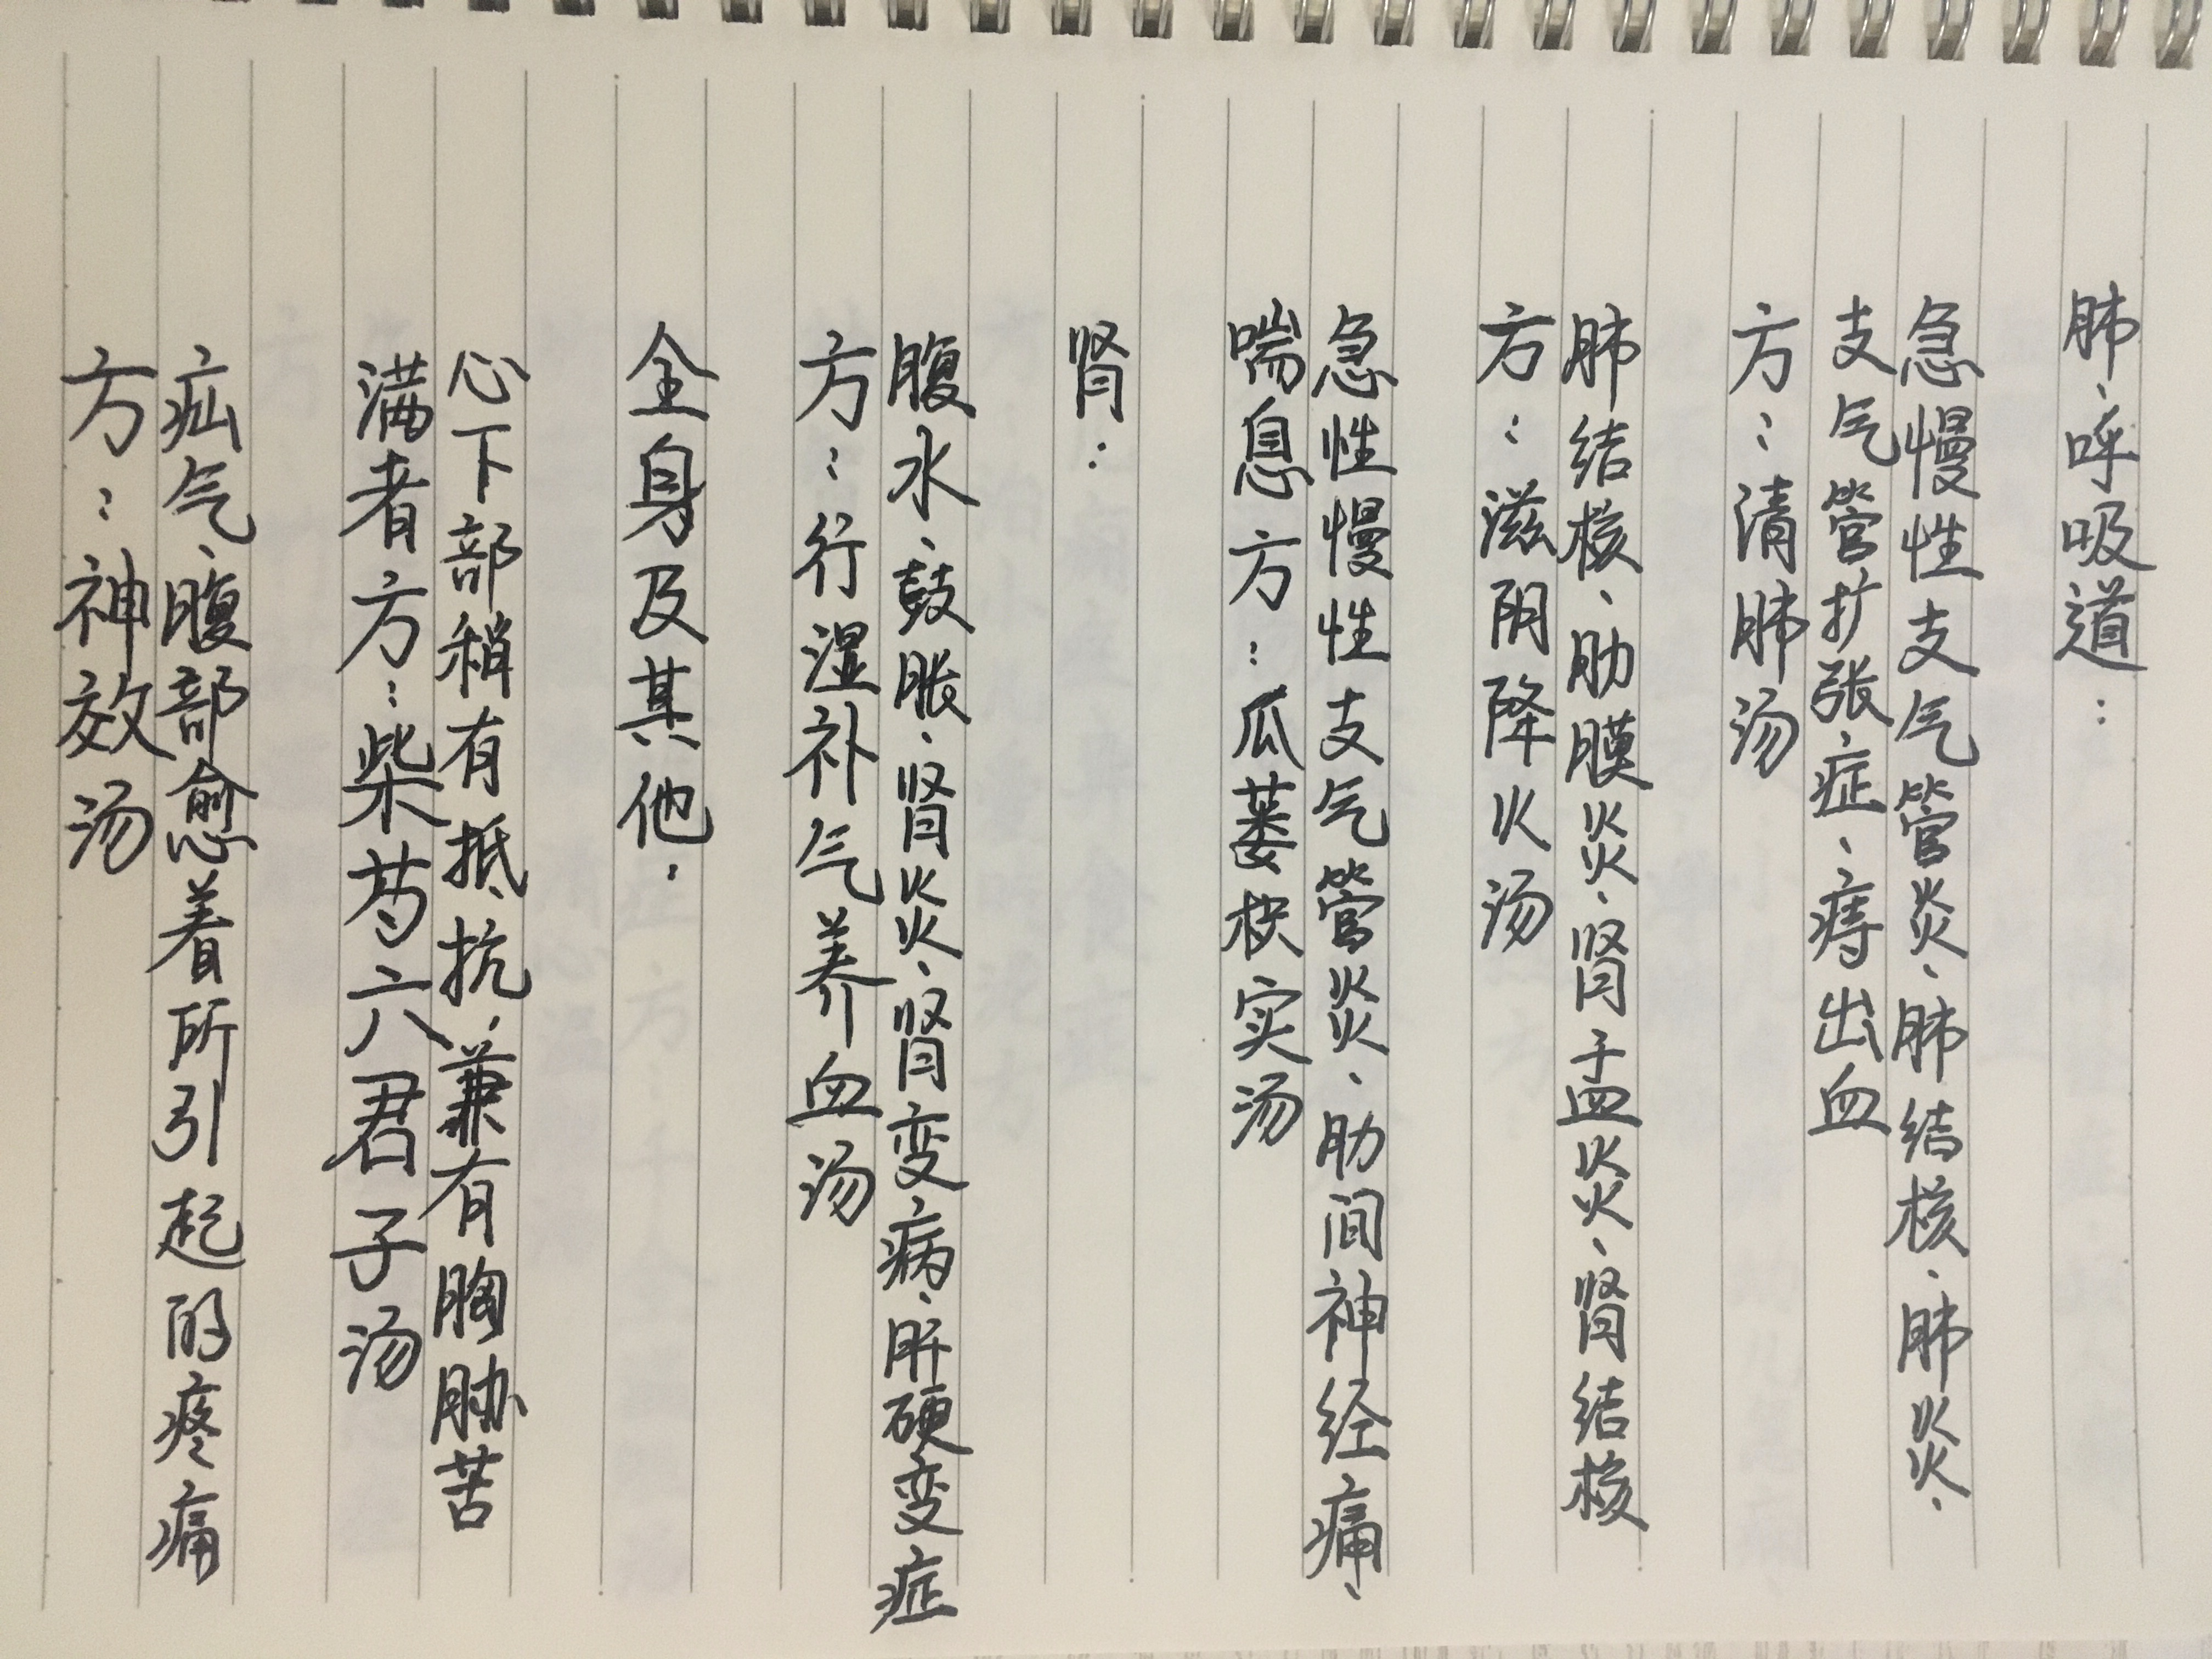 肺、呼吸道：
急慢性支气管炎、肺结核、肺炎、
支气管扩张症、痔出血
方：清肺汤
肺结核、肋膜炎、肾盂炎、肾结核
方：滋阴降火汤
急性慢性支气管炎、肋间神经痛、
喘息方：瓜蒌枳实汤
肾：
腹水、鼓胀、肾炎、肾变病、肝硬变症
方：行湿补气养血汤
全身及其他：
心下部稍有抵抗，兼有胸胁苦
满者方：柴芍六君子汤
疝气、腹部愈着所引起的疼痛
方：神效汤